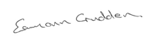 Eamann Crudden.